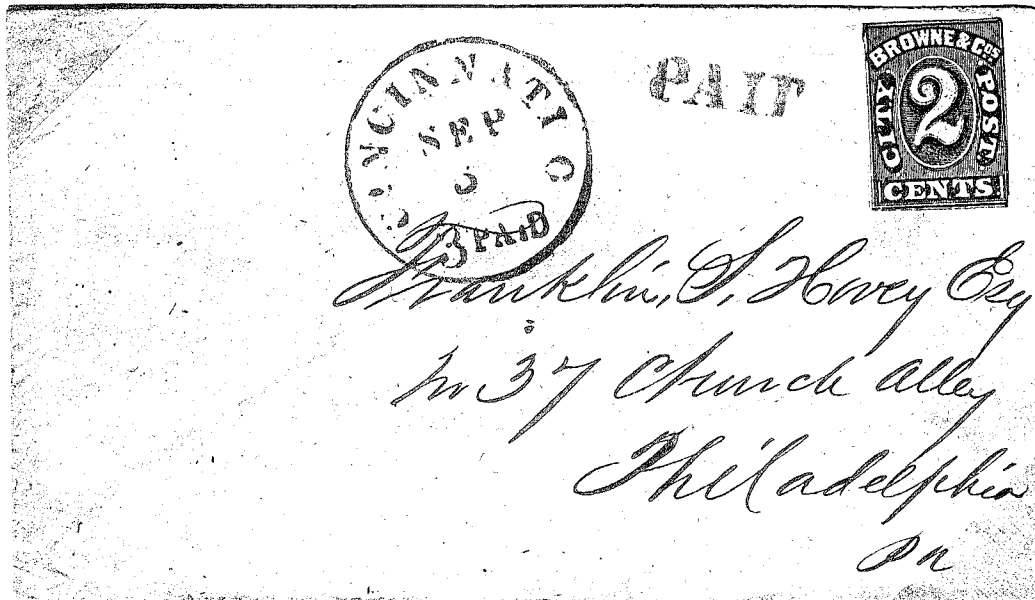 CINCINNATI O
SEP
3 PAID
PAID
BROWNE & COS
CITY POST
2
CENTS
Franklin, S, Hovey Esq
No 37 Church alley
Philadelphia
Pa